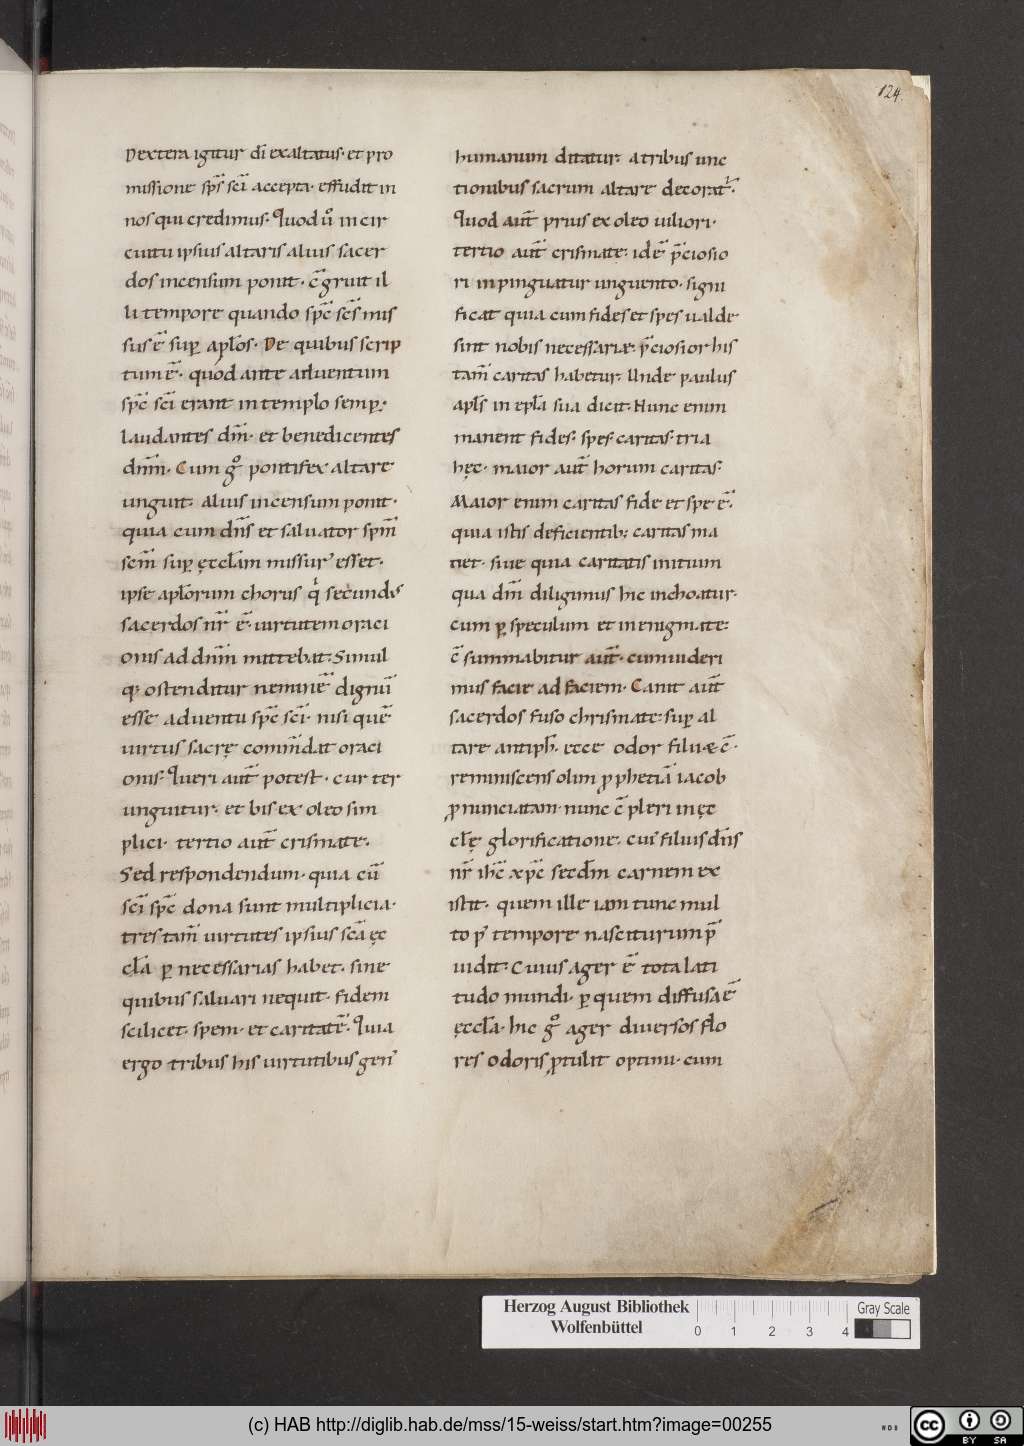 124.
Dextera igitur dī exaltatus· et pro
missione sp̄s sc̄i accepta· effudit in
nos qui credimus· Quod ū in cir
cuitu ipsius altaris alius sacer
dos incensum ponit· c̄gruit il
li tempore quando sp̄c sc̄s mis
sus ē sup̲ aplōs· De quibus scrip
tum ē· quod ante aduentum
sp̄c sc̄i erant in templo semp̲·
laudantes dn̄m· et benedicentes
dn̄m· Cum g̊ pontifex altare
unguit· alius incensum ponit·
quia cum dn̄s et saluator sp̄m
sc̄m sup̲ ęccłam missurꝰ esset·
ipse aplōrum chorus q̇ secundꝰ
sacerdos nr̄ ē· uirtutem oraci
onis ad dn̄m mittebat· Simul
q; ostenditur neminē dignū
esse aduentu sp̄c sc̄i· nisi quē
uirtus sacrę com̄dat oraci
onis· Queri aut̄ potest· cur ter
unguitur· et bis ex oleo sim
plici· tertio aut̄ crismate·
Sed respondendum· quia cū
sc̄i sp̄c dona sunt multiplicia·
tres tam̄ uirtutes ipsius sc̄a ęc
cła p̲ necessarias habet· sine
quibus saluari nequit· fidem
scilicet· spem· et caritatē· Quia
ergo tribus his uirtutibus genꝰ
humanum ditatur· a tribus unc
tionibus sacrum altare decorat̄·
Quod aut̄ prius ex oleo uiliori·
tertio aut̄ crismate· idē p̄ciosio
ri inpinguatur unguento· signi
ficat quia cum fides et spes ualde
sint nobis necessariæ· p̄ciosior his
tam̄ caritas habetur· Unde paulus
apłs in epła sua dicit· Nunc enim
manent fides· spes· caritas· tria
hęc· maior aut̄ horum caritas·
Maior enim caritas fide et spe ē·
quia istis deficientib; caritas ma
net· siue quia caritatis initium
qua dm̄ diligimus hic inchoatur·
cum p̲ speculum et in enigmate·
c̄summabitur aut̄· cum uideri
mus facie ad faciem· Canit aut̄
sacerdos fuso chrismate· sup̲ al
tare antiph̄· ecce odor filii & c̄·
reminiscens olim ꝓphetiā iacob
ꝓnunciatam· nunc c̄pleri in ęc
clę̄ glorificatione· cuiꝰ filius dn̄s
nr̄ ih̄c xp̄c secdm̄ carnem ex
istit· quem ille iam tunc mul
to pꝰ tempore nasciturum p̄
uidit· Cuius ager ē tota lati
tudo mundi· p̲ quem diffusa ē
ęccła· hic g̊ ager diuersos flo
res odoris ꝓtulit optimi· cum
Herzog August Bibliothek
Wolfenbüttel
0 1 2 3 4
Gray Scale
(c) HAB http://diglib.hab.de/mss/15-weiss/start.htm?image=00255
cc BY SA